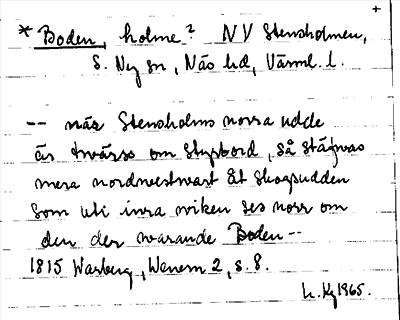 +
* Boden, holme? NV Stensholmen,
S. Ny sn, Näs hd, Värml. l.
-- när Stensholms norra udde
är tvärss om Styrbord, så stäfwas
mera nordvestwart åt Skogsudden
som uti inra wiken ses norr om
den der warande Boden --
1815 Warberg, Wenern 2, s. 8.
1965.